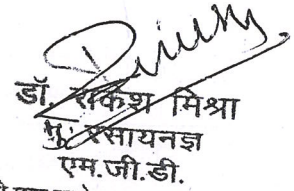 डॉ. राकेश मिश्रा
मु. रसायनज्ञ
एम.जी.डी.